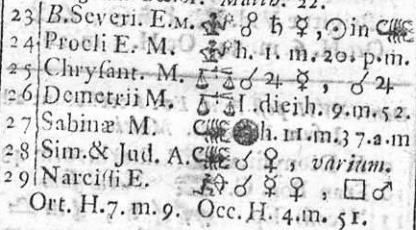 23 B. Severi. E. M. ♍ ☍ ♄ ☿, ☉ in ♏
24 Procli E. M. ♍ h. 1. m. 20. p. m.
25 Chrysant. M. ♎ ☌ ♃ ☿, ☌ ♃
26 Demetrii M. ♎ I. diei h. 9. m. 52.
27 Sabinæ M. ♏ h. 11. m. 37. a. m
28 Sim. & Jud. A. ♏ ☌ ♀, varium.
29 Narcissi E. ♐ ☌ ☿ ♀, □ ♂
Ort. H. 7. m. 9. Occ. H. 4. m. 51.